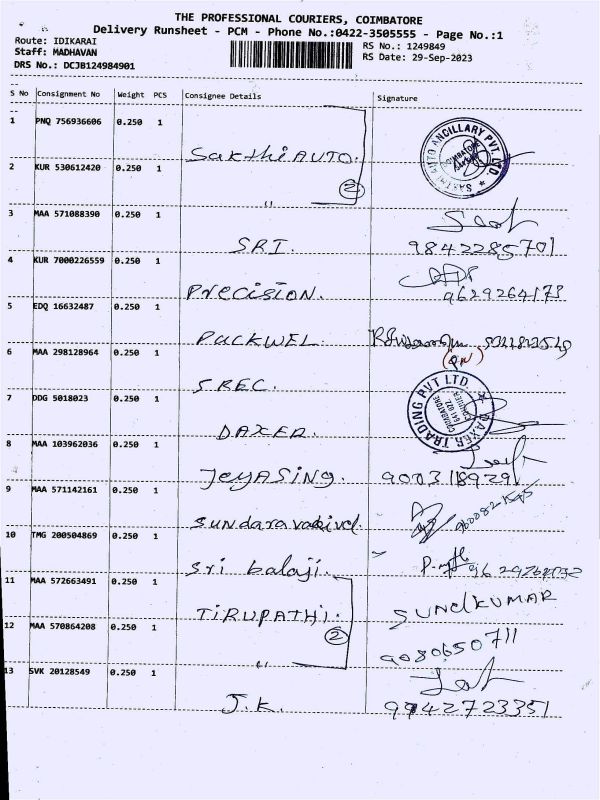 THE PROFESSIONAL COURIERS, COIMBATORE
Delivery Runsheet - PCM - Phone No.:0422-3505555 - Page No.:1
Route: IDIKARAI
RS No.: 1249849
Staff: MADHAVAN
RS Date: 29-Sep-2023
DRS No.: DCJB124984901
S No Consignment No Weight PCS Consignee Details Signature
1 PNQ 756936606 0.250 1
Sakthi AUTO.
SAKTHI AUTO ANCILLARY PVT. LTD.
2 KUR 530612420 0.250 1
2
"
3 MAA 571088390 0.250 1
SRI. 9842285701
4 KUR 7000226559 0.250 1
Precision. 9629264173
5 EDQ 16632487 0.250 1
PACKWEL
6 MAA 298128964 0.250 1
SREC.
7 DDG 5018023 0.250 1
DAXER.
DAXER TRADING PVT LTD
COIMBATORE
8 MAA 103962036 0.250 1
JeyASING.
9 MAA 571142161 0.250 1
Sundaravadivel
10 TMG 200504869 0.250 1
Sri balaji.
11 MAA 572663491 0.250 1
TIRUPATHI.
SUNdKUMAR
2
12 MAA 570864208 0.250 1
9080650711
"
13 SVK 20128549 0.250 1
J.K. 9942723351